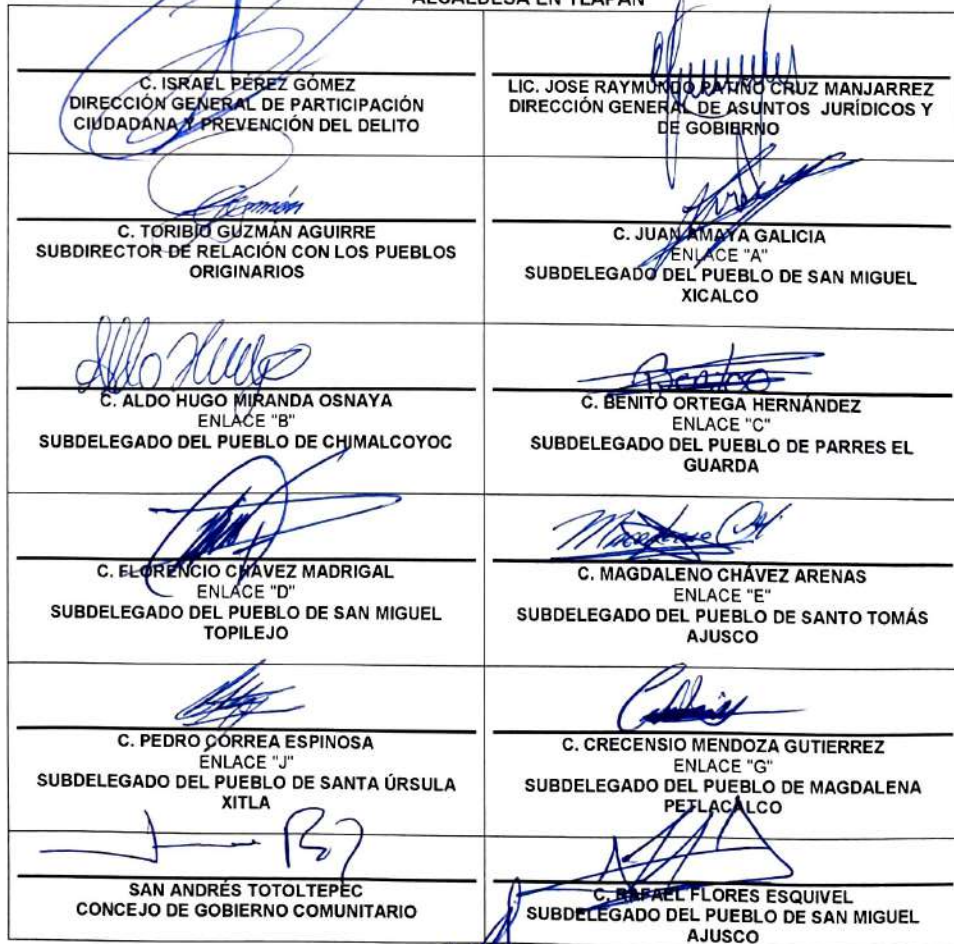 ALCALDESA EN TLAPAN
C. ISRAEL PÉREZ GÓMEZ
DIRECCIÓN GENERAL DE PARTICIPACIÓN
CIUDADANA Y PREVENCIÓN DEL DELITO
LIC. JOSE RAYMUNDO PATIÑO CRUZ MANJARREZ
DIRECCIÓN GENERAL DE ASUNTOS JURÍDICOS Y
DE GOBIERNO
Guzmán
C. TORIBIO GUZMÁN AGUIRRE
SUBDIRECTOR DE RELACIÓN CON LOS PUEBLOS
ORIGINARIOS
C. JUAN AMAYA GALICIA
ENLACE "A"
SUBDELEGADO DEL PUEBLO DE SAN MIGUEL
XICALCO
Aldo Hugo
C. ALDO HUGO MIRANDA OSNAYA
ENLACE "B"
SUBDELEGADO DEL PUEBLO DE CHIMALCOYOC
Benito
C. BENITO ORTEGA HERNÁNDEZ
ENLACE "C"
SUBDELEGADO DEL PUEBLO DE PARRES EL
GUARDA
C. FLORENCIO CHÁVEZ MADRIGAL
ENLACE "D"
SUBDELEGADO DEL PUEBLO DE SAN MIGUEL
TOPILEJO
C. MAGDALENO CHÁVEZ ARENAS
ENLACE "E"
SUBDELEGADO DEL PUEBLO DE SANTO TOMÁS
AJUSCO
C. PEDRO CORREA ESPINOSA
ENLACE "J"
SUBDELEGADO DEL PUEBLO DE SANTA ÚRSULA
XITLA
C. CRECENSIO MENDOZA GUTIERREZ
ENLACE "G"
SUBDELEGADO DEL PUEBLO DE MAGDALENA
PETLACALCO
SAN ANDRÉS TOTOLTEPEC
CONCEJO DE GOBIERNO COMUNITARIO
C. RAFAEL FLORES ESQUIVEL
SUBDELEGADO DEL PUEBLO DE SAN MIGUEL
AJUSCO